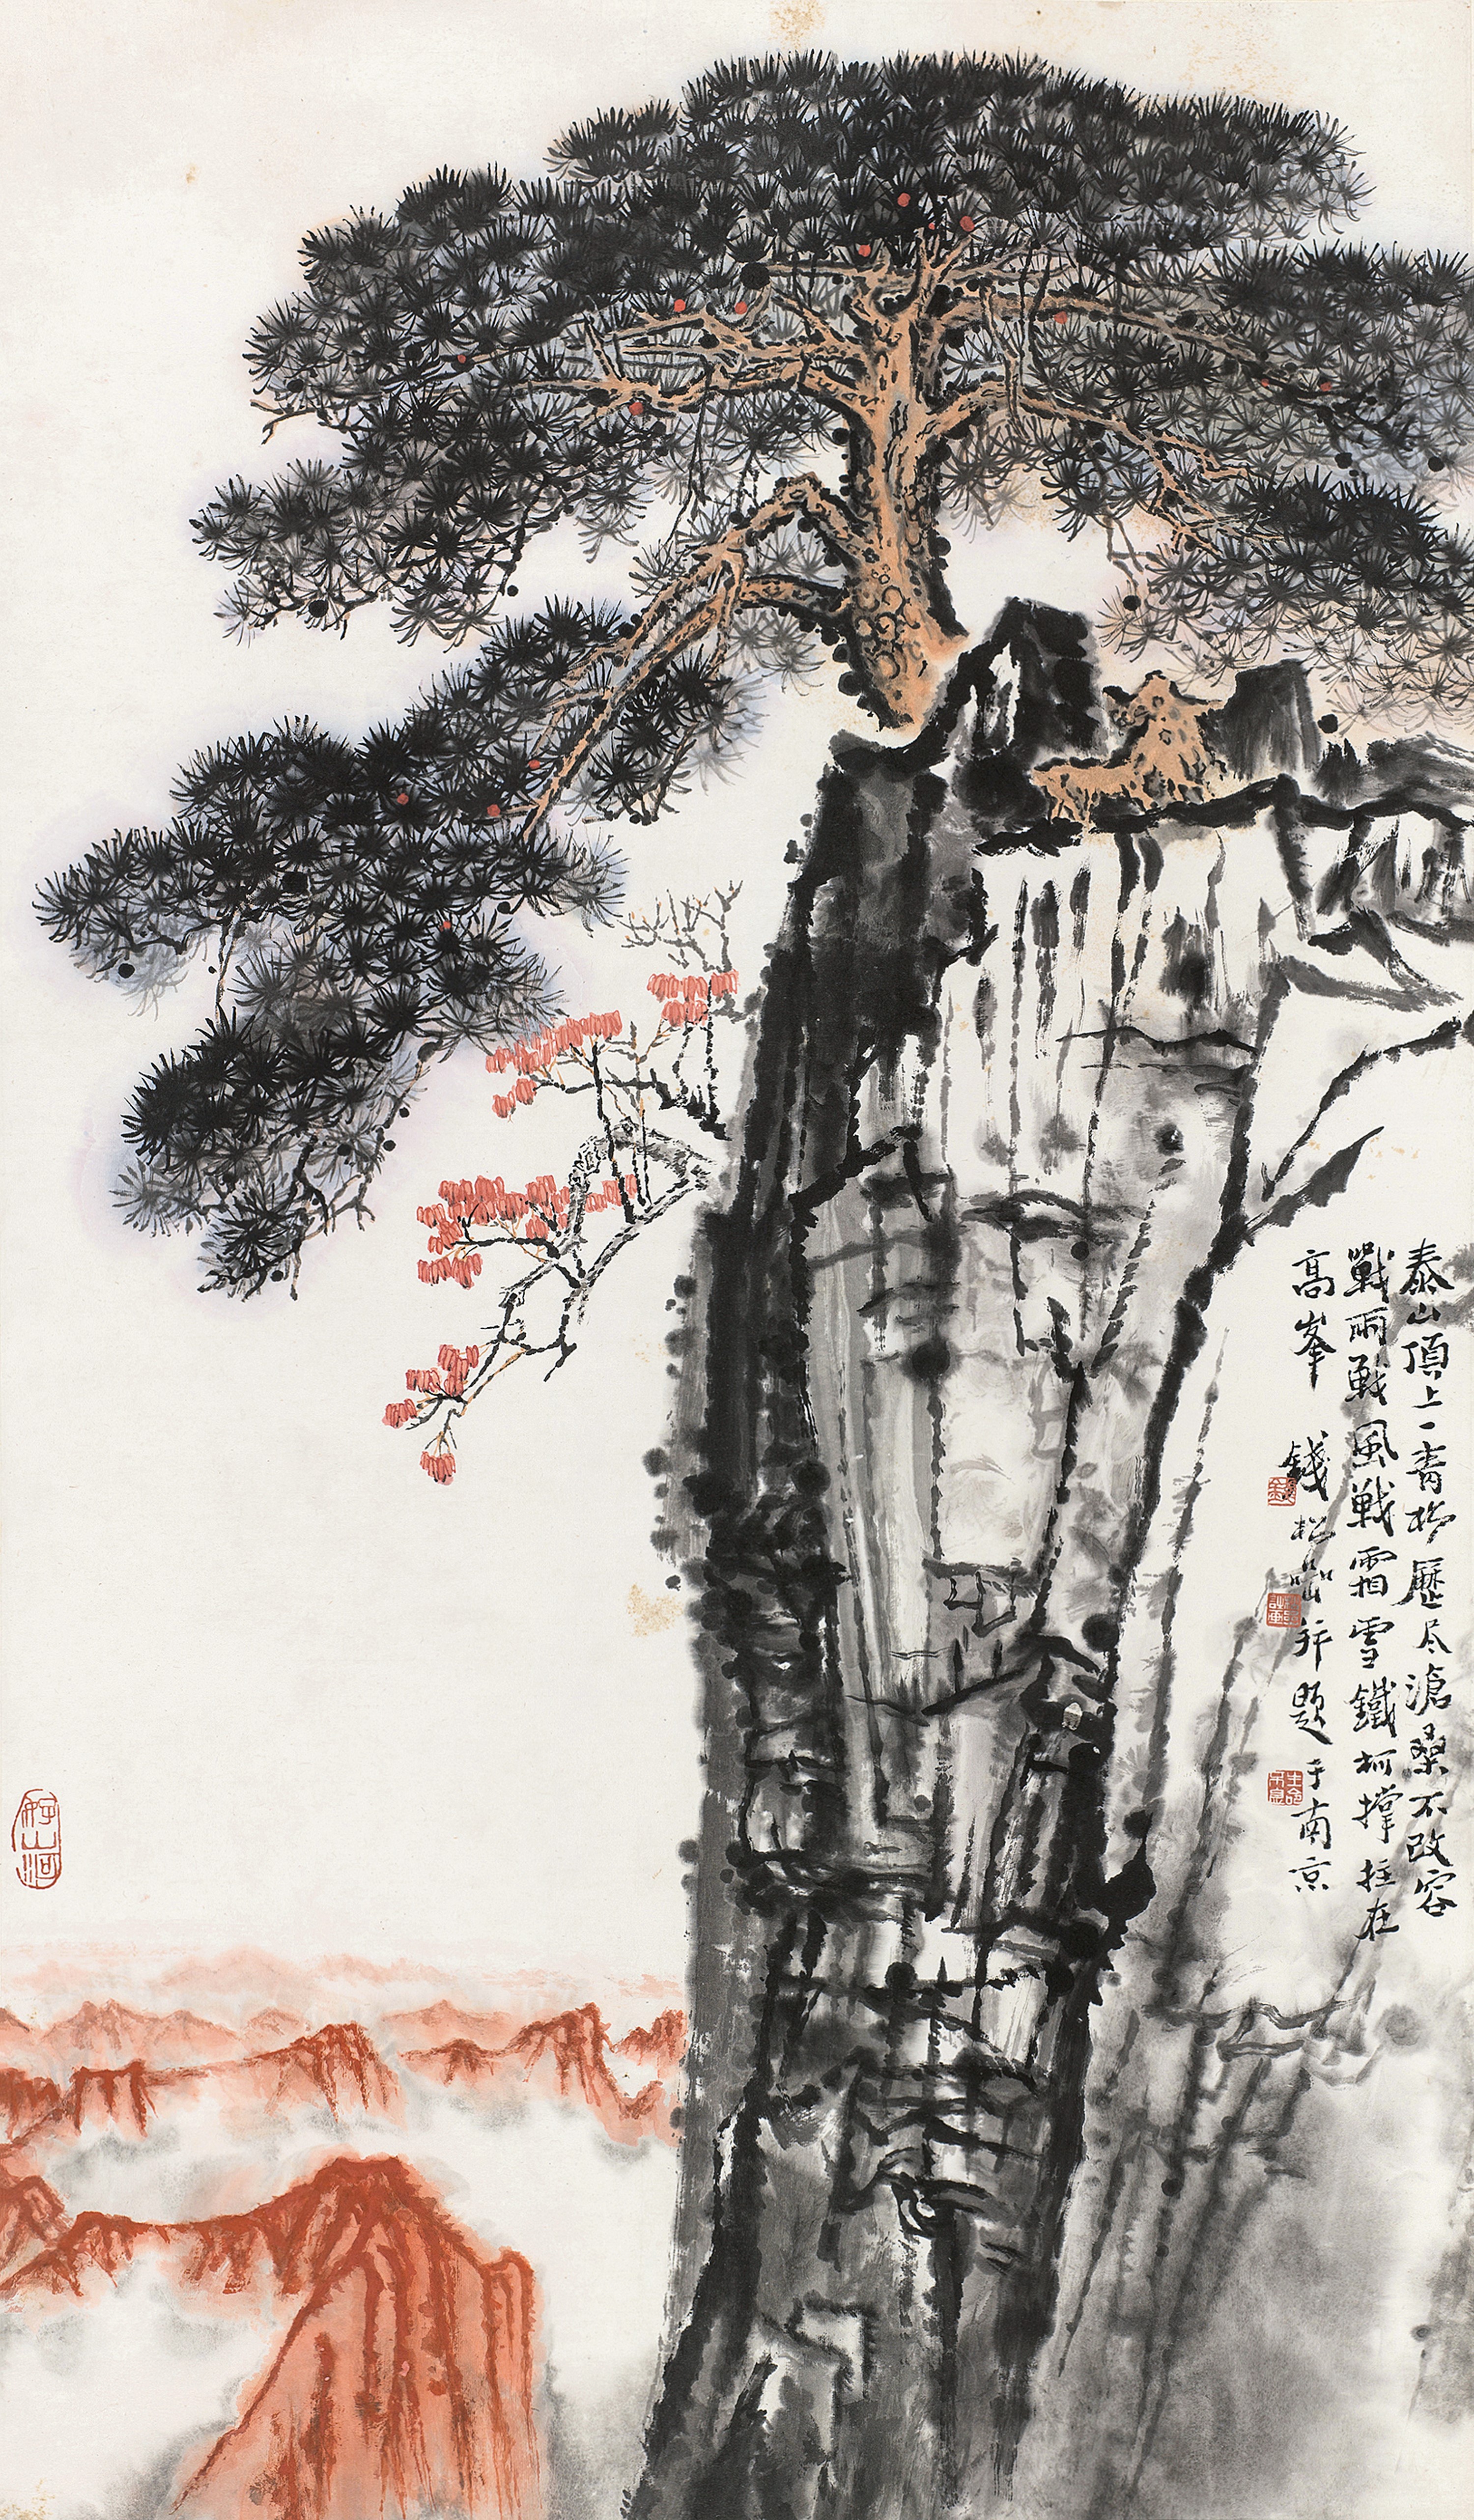 泰山頂上一青松歷尽滄桑不改容
戰雨戰風戰霜雪鐵柯撐拄在
高峯 錢松嵒并題于南京
錢
好山河